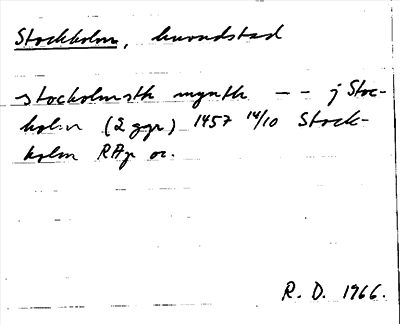 Stockholm, huvudstad
stocholmsth mynth -- j Stoc-
holm (2 ggr) 1457 14/10 Stock-
holm RAp or.
R. D. 1966.